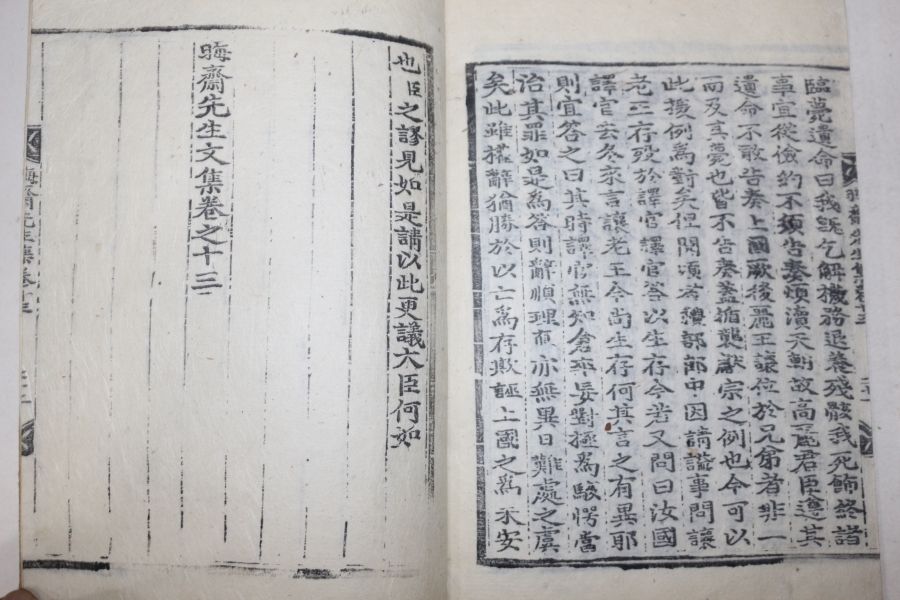 臨薨遺命曰我旣乞解機務退養殘骸我死飾終諸
事宜從儉約不須告奏煩瀆天朝故高麗君臣遵其
遺命不敢告奏上國厥後麗王讓位於兄弟者非一
而及其薨也皆不告奏蓋循襲獻宗之例也今可以
此援例爲對矣但聞頃者禮部郎中因請謚事問讓
老王存歿於譯官譯官答以生存今若又問曰汝國
譯官去冬來言讓老王今尙生存何其言之有異耶
則宜答之曰其時譯官無知倉卒妄對極爲駭愕當
治其罪如是爲答則辭順理直亦無異日難處之虞
矣此雖權辭猶勝於以亡爲存欺誣上國之爲未安
也臣之謬見如是請以此更議大臣何如
晦齋先生文集卷之十三
晦齋先生集卷十三